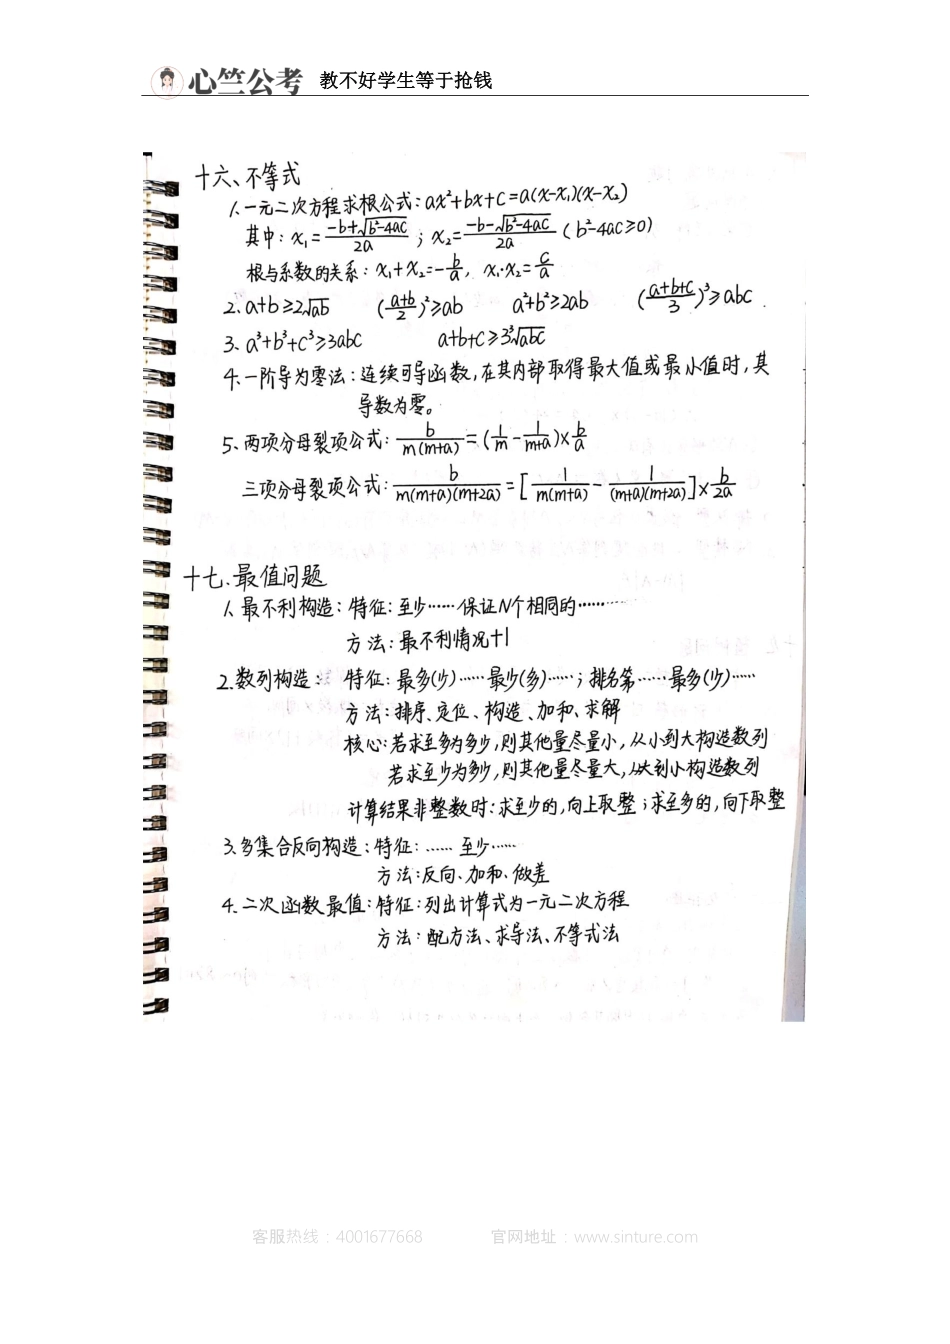 心竺公考 教不好学生等于抢钱
十六、不等式
1.一元二次方程求根公式:ax²+bx+c=a(x-x₁)(x-x₂)
其中:x₁=(-b+√(b²-4ac))/2a;x₂=(-b-√(b²-4ac))/2a(b²-4ac≥0)
根与系数的关系:x₁+x₂=-b/a,x₁·x₂=c/a
2.a+b≥2√ab (a+b/2)²≥ab a²+b²≥2ab (a+b+c/3)³≥abc
3、a³+b³+c³≥3abc a+b+c≥3³√abc
4.一阶导为零法:连续可导函数,在其内部取得最大值或最小值时,其
导数为零。
5、两项分母裂项公式:b/m(m+a)=(1/m-1/m+a)×b/a
三项分母裂项公式:b/m(m+a)(m+2a)=[1/m(m+a)-1/(m+a)(m+2a)]×b/2a
十七.最值问题
1.最不利构造:特征:至少……保证N个相同的……
方法:最不利情况+1
2.数列构造:特征:最多(少)……最少(多)……;排名第……最多(少)……
方法:排序、定位、构造、加和、求解
核心:若求至多为多少,则其他量尽量小,从小到大构造数列
若求至少为多少,则其他量尽量大,从大到小构造数列
计算结果非整数时:求至少的,向上取整;求至多的,向下取整
3.多集合反向构造:特征:……至少……
方法:反向、加和、做差
4.二次函数最值:特征:列出计算式为一元二次方程
方法:配方法、求导法、不等式法
客服热线:4001677668 官网地址:www.sinture.com